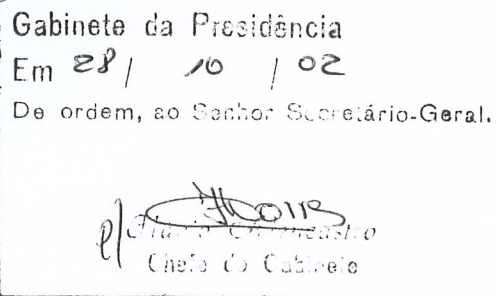 Gabinete da Presidência
Em 28 / 10 / 02
De ordem, ao Senhor Secretário-Geral.
p/
Chefe do Gabinete